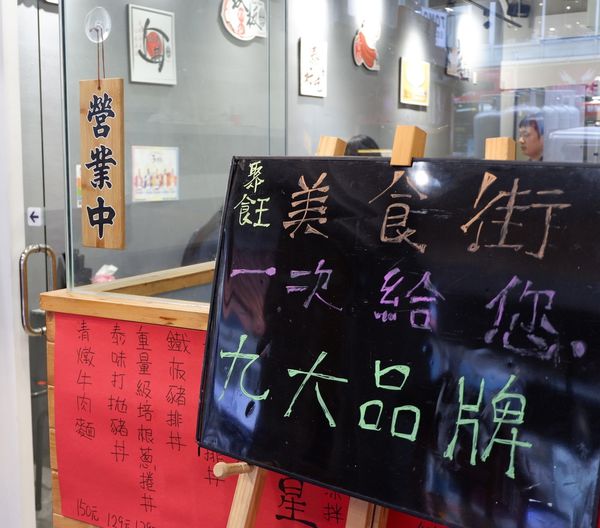 營業中
聚
食王
美食街
一次給您
九大品牌
鐵板豬排丼
重量級培根蔥捲丼
泰味打拋豬丼
清燉牛肉麵
129元
150元
星